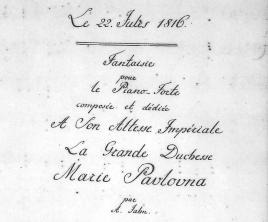 Le 22. Jules 1816.
Fantaisie
pour
le Piano-Forte
composée et dédiée
A Son Altesse Impériale
La Grande Duchesse
Marie Pavlovna
par
A. Jahn.